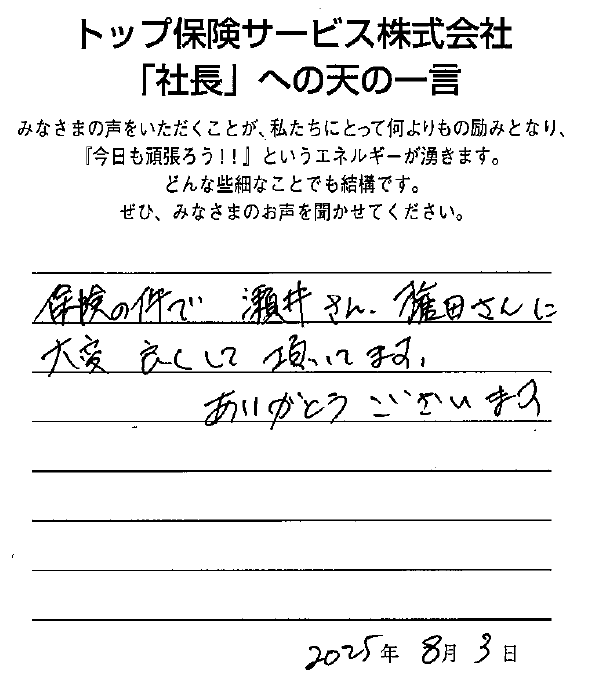 トップ保険サービス株式会社
「社長」への天の一言
みなさまの声をいただくことが、私たちにとって何よりもの励みとなり、
『今日も頑張ろう!!』というエネルギーが湧きます。
どんな些細なことでも結構です。
ぜひ、みなさまのお声を聞かせてください。
保険の件で 瀬井さん、権田さんに
大変 良くして 頂いてます。
ありがとうございます
2025年 8月 3日